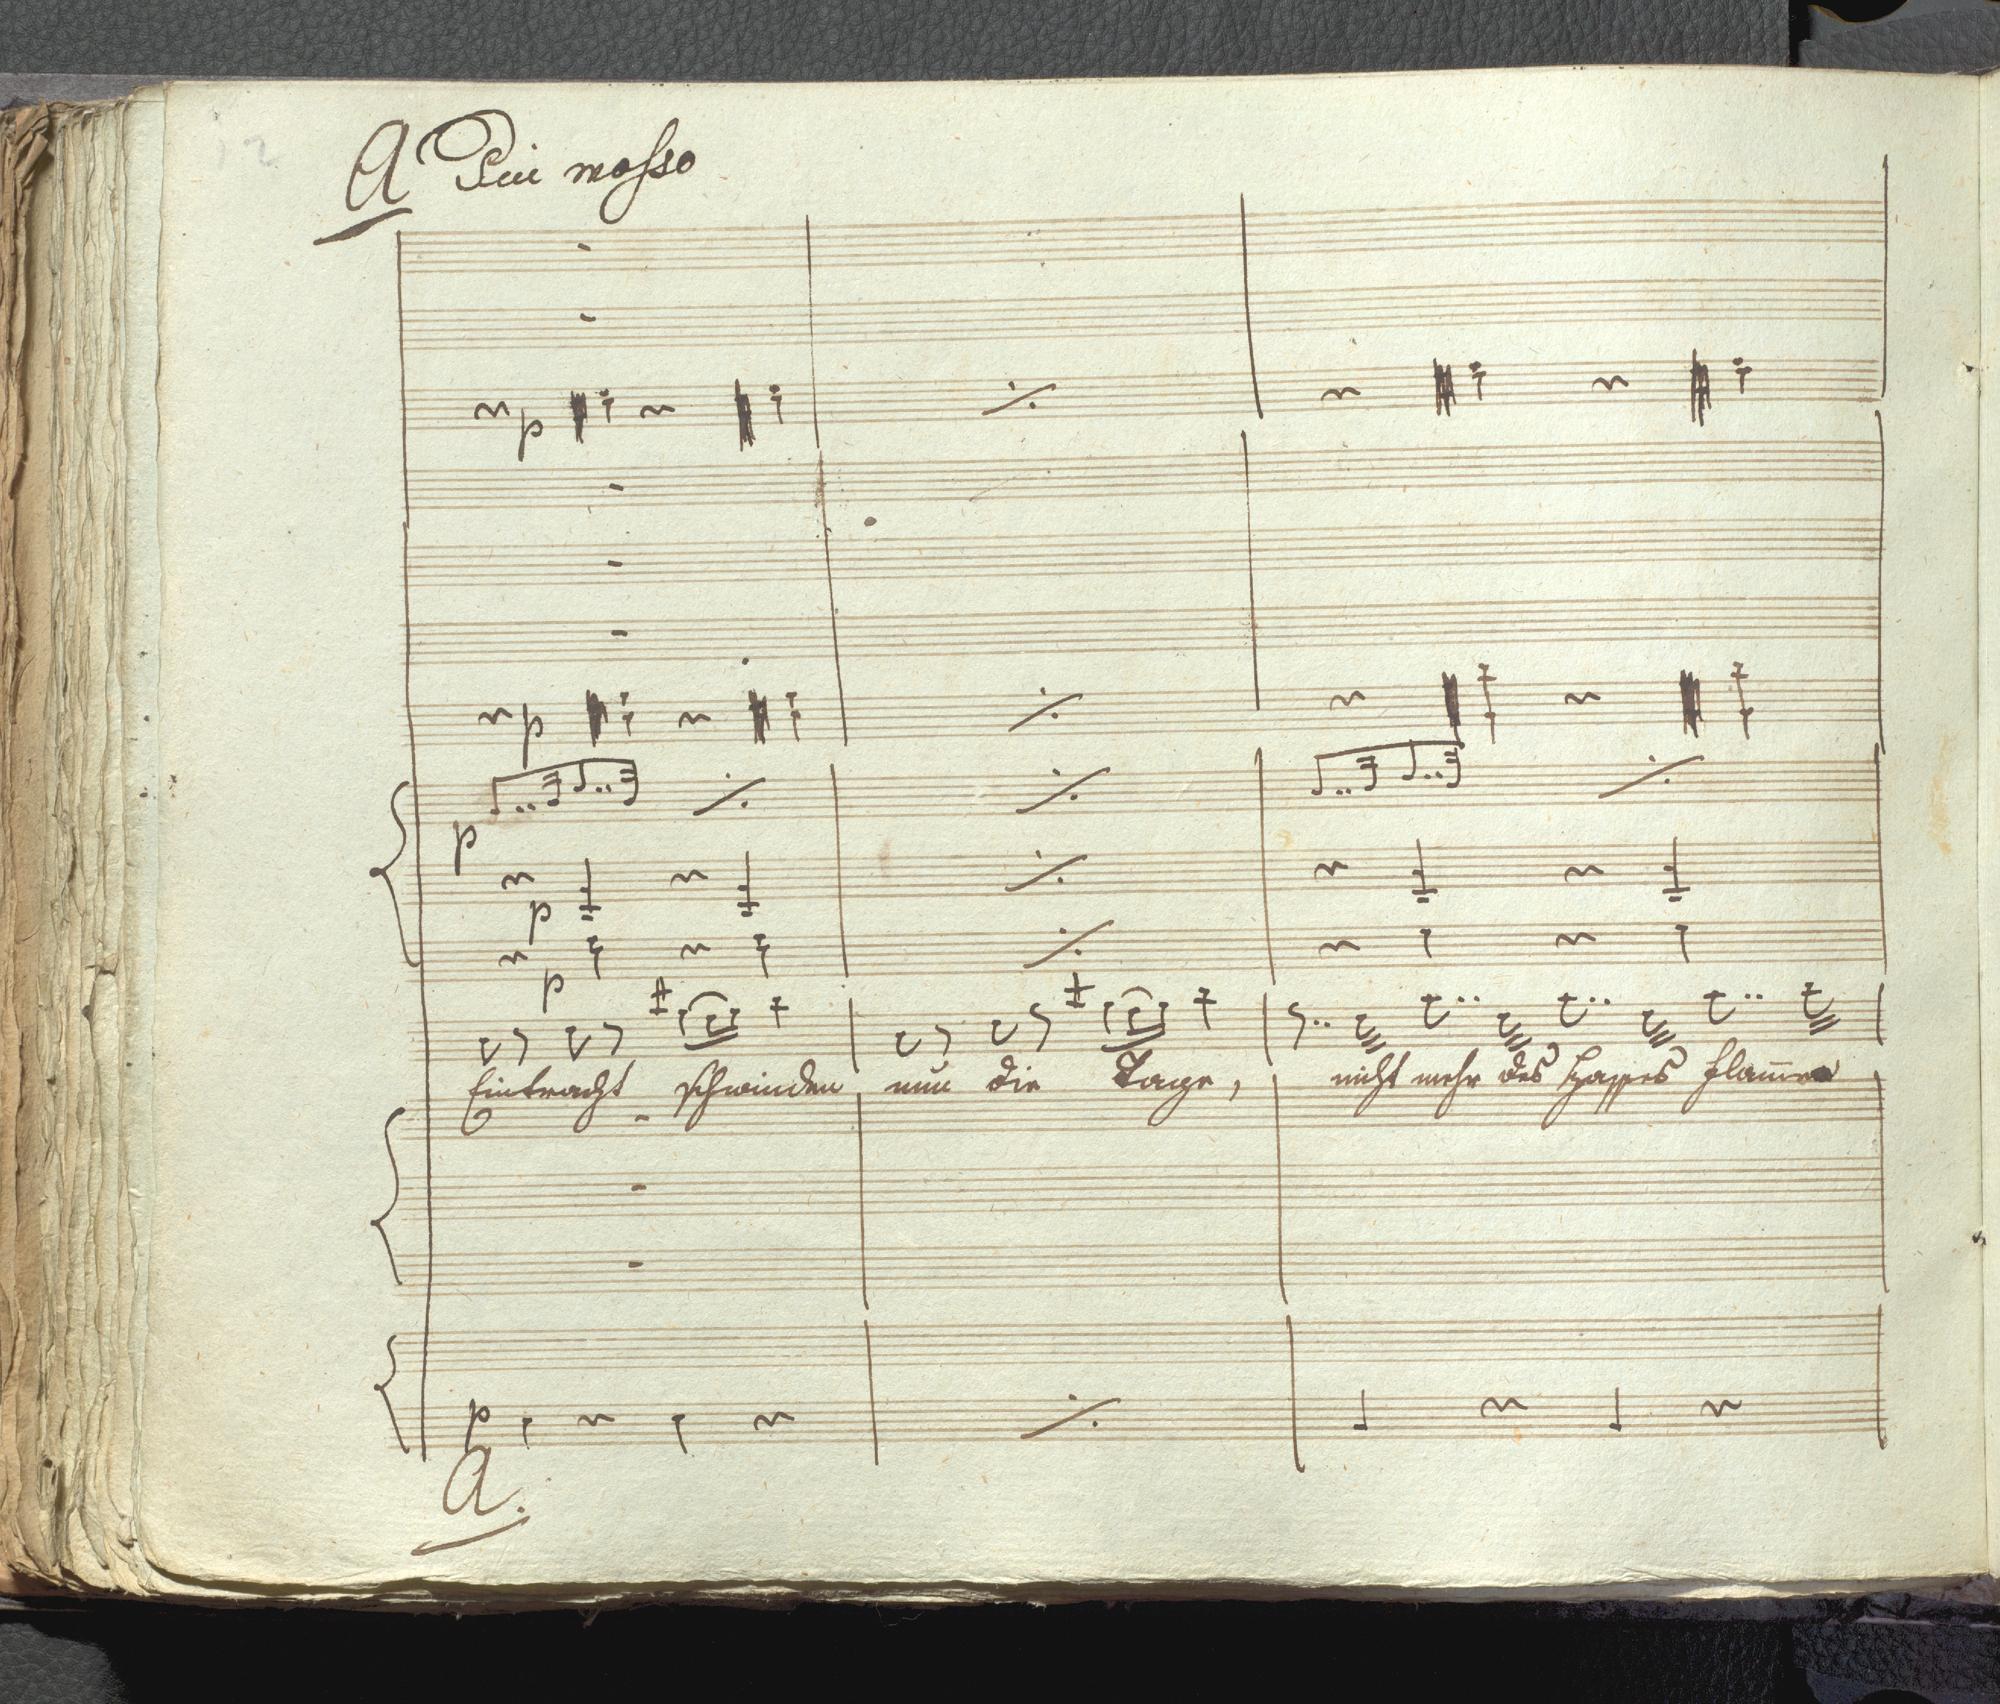 12
A Piu mosso
p
p
p
p
p
Eintracht schwinden nun die Tage, nicht mehr des Hasses Flamme
p
A.